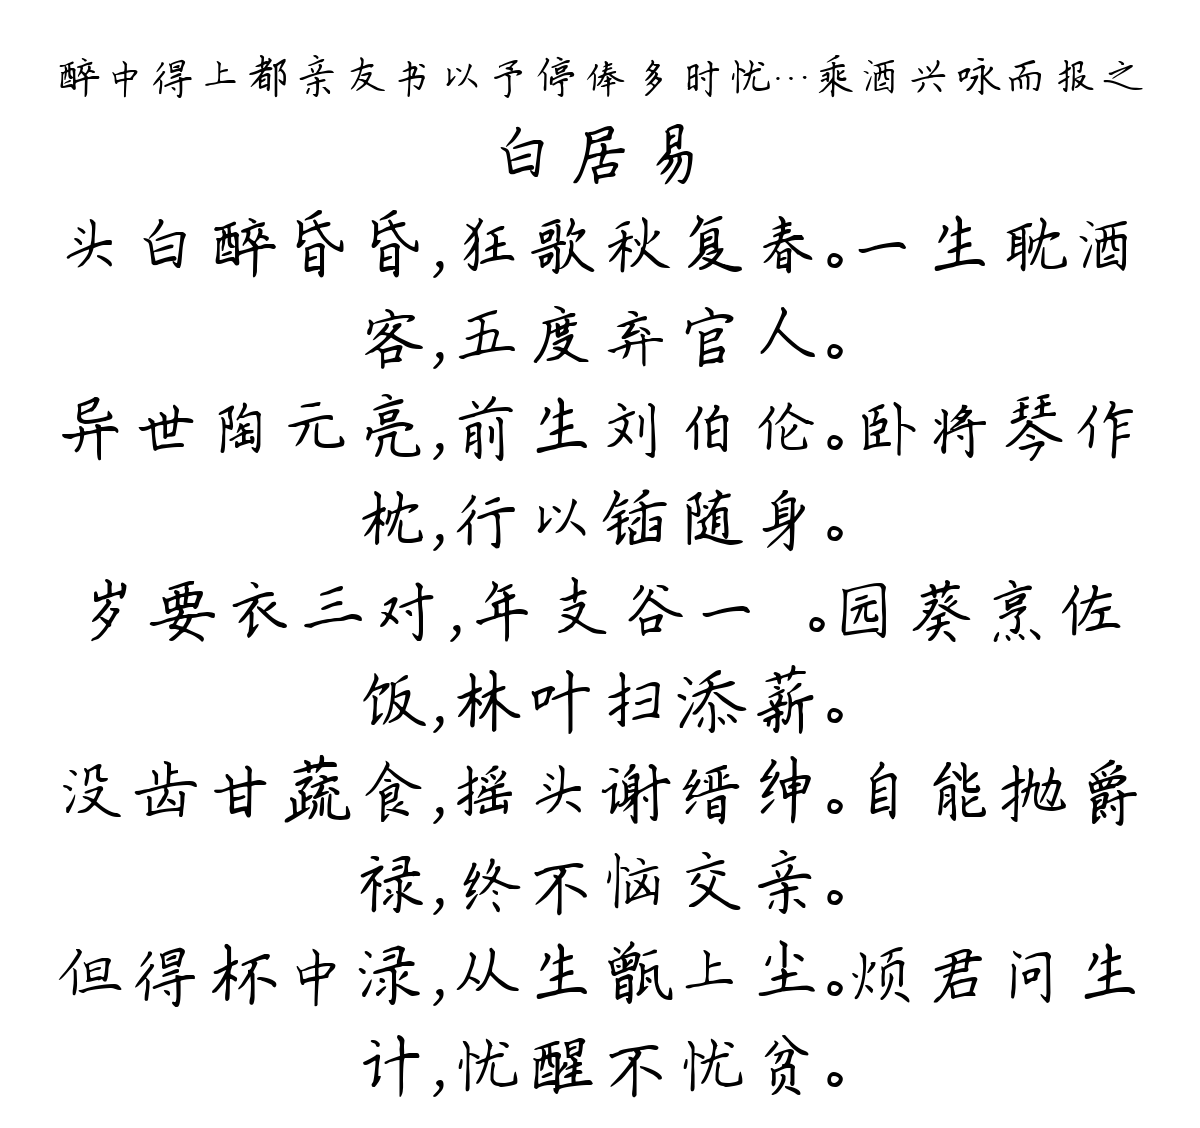 醉中得上都亲友书以予停俸多时忧…乘酒兴咏而报之
白居易
头白醉昏昏,狂歌秋复春。一生耽酒
客,五度弃官人。
异世陶元亮,前生刘伯伦。卧将琴作
枕,行以锸随身。
岁要衣三对,年支谷一 。园葵烹佐
饭,林叶扫添薪。
没齿甘蔬食,摇头谢缙绅。自能抛爵
禄,终不恼交亲。
但得杯中渌,从生甑上尘。烦君问生
计,忧醒不忧贫。